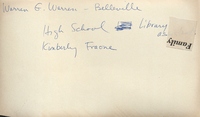 Warren G. Warren - Belleville
High School Library
Kimberly
Family